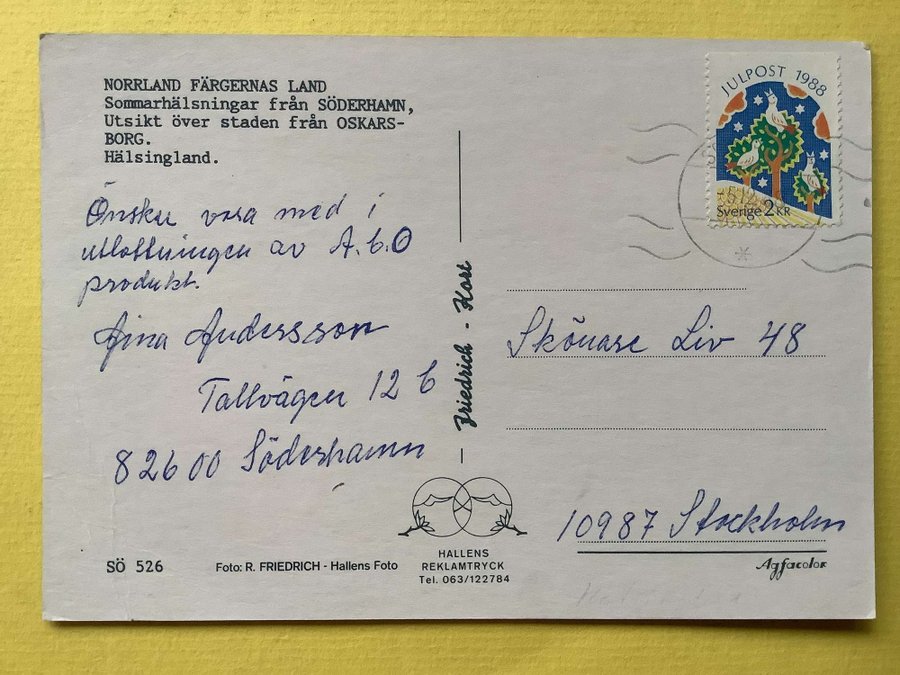 NORRLAND FÄRGERNAS LAND
Sommarhälsningar från SÖDERHAMN,
Utsikt över staden från OSKARS-
BORG.
Hälsingland.
Önskar vara med i
utlottningen av A.C.O
produkt.
Aina Andersson
Tallvägen 12 C
82600 Söderhamn
SÖ 526
Foto: R. FRIEDRICH - Hallens Foto
Friedrich - Kort
HALLENS
REKLAMTRYCK
Tel. 063/122784
JULPOST 1988
Sverige 2 KR
Skönare Liv 48
10987 Stockholm
Agfacolor